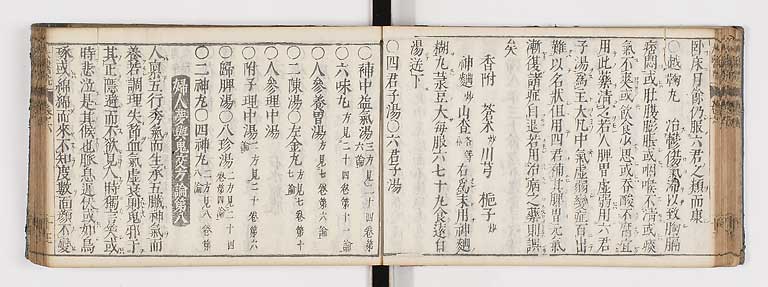 臥床月餘仍服六君之類而康
〇越鞠丸 治鬱傷氣滯以致胸膈
痞悶或肚腹膨脹或咽喉不清或痰
氣不爽或飲食少思或吞酸不腐宜
用此藥清之若人脾胃虛弱用六君
子湯爲主大凡中氣虛弱變症百出
難以名狀但用四君補其脾胃元氣
漸復諸症自退若用治病之藥則誤
矣
香附 蒼朮 川芎 梔子炒
神麴炒 山查各等 右爲末用神麴
糊丸菉豆大每服六七十丸食遠白
湯送下
〇四君子湯〇六君子湯
〇補中益氣湯三方見二十四卷第六論
〇六味丸方見二十四卷第十一論
〇人參養胃湯方見七卷第六論
〇二陳湯〇左金丸二方見七卷第十七論
〇人參理中湯
〇附子理中湯二方見二十卷第六
〇歸脾湯〇八珍湯二方見二十四卷第四論
〇二神丸〇四神丸二方見八卷第八論
婦人夢與鬼交方論第八
人稟五行秀氣而生承五臟神氣而
養若調理失節血氣虛衰則鬼邪干
其正隱避而不欲見人時獨言笑或
時悲泣是其候也脈息遲伏或如鳥
啄或綿綿而來不知度數面顏不變